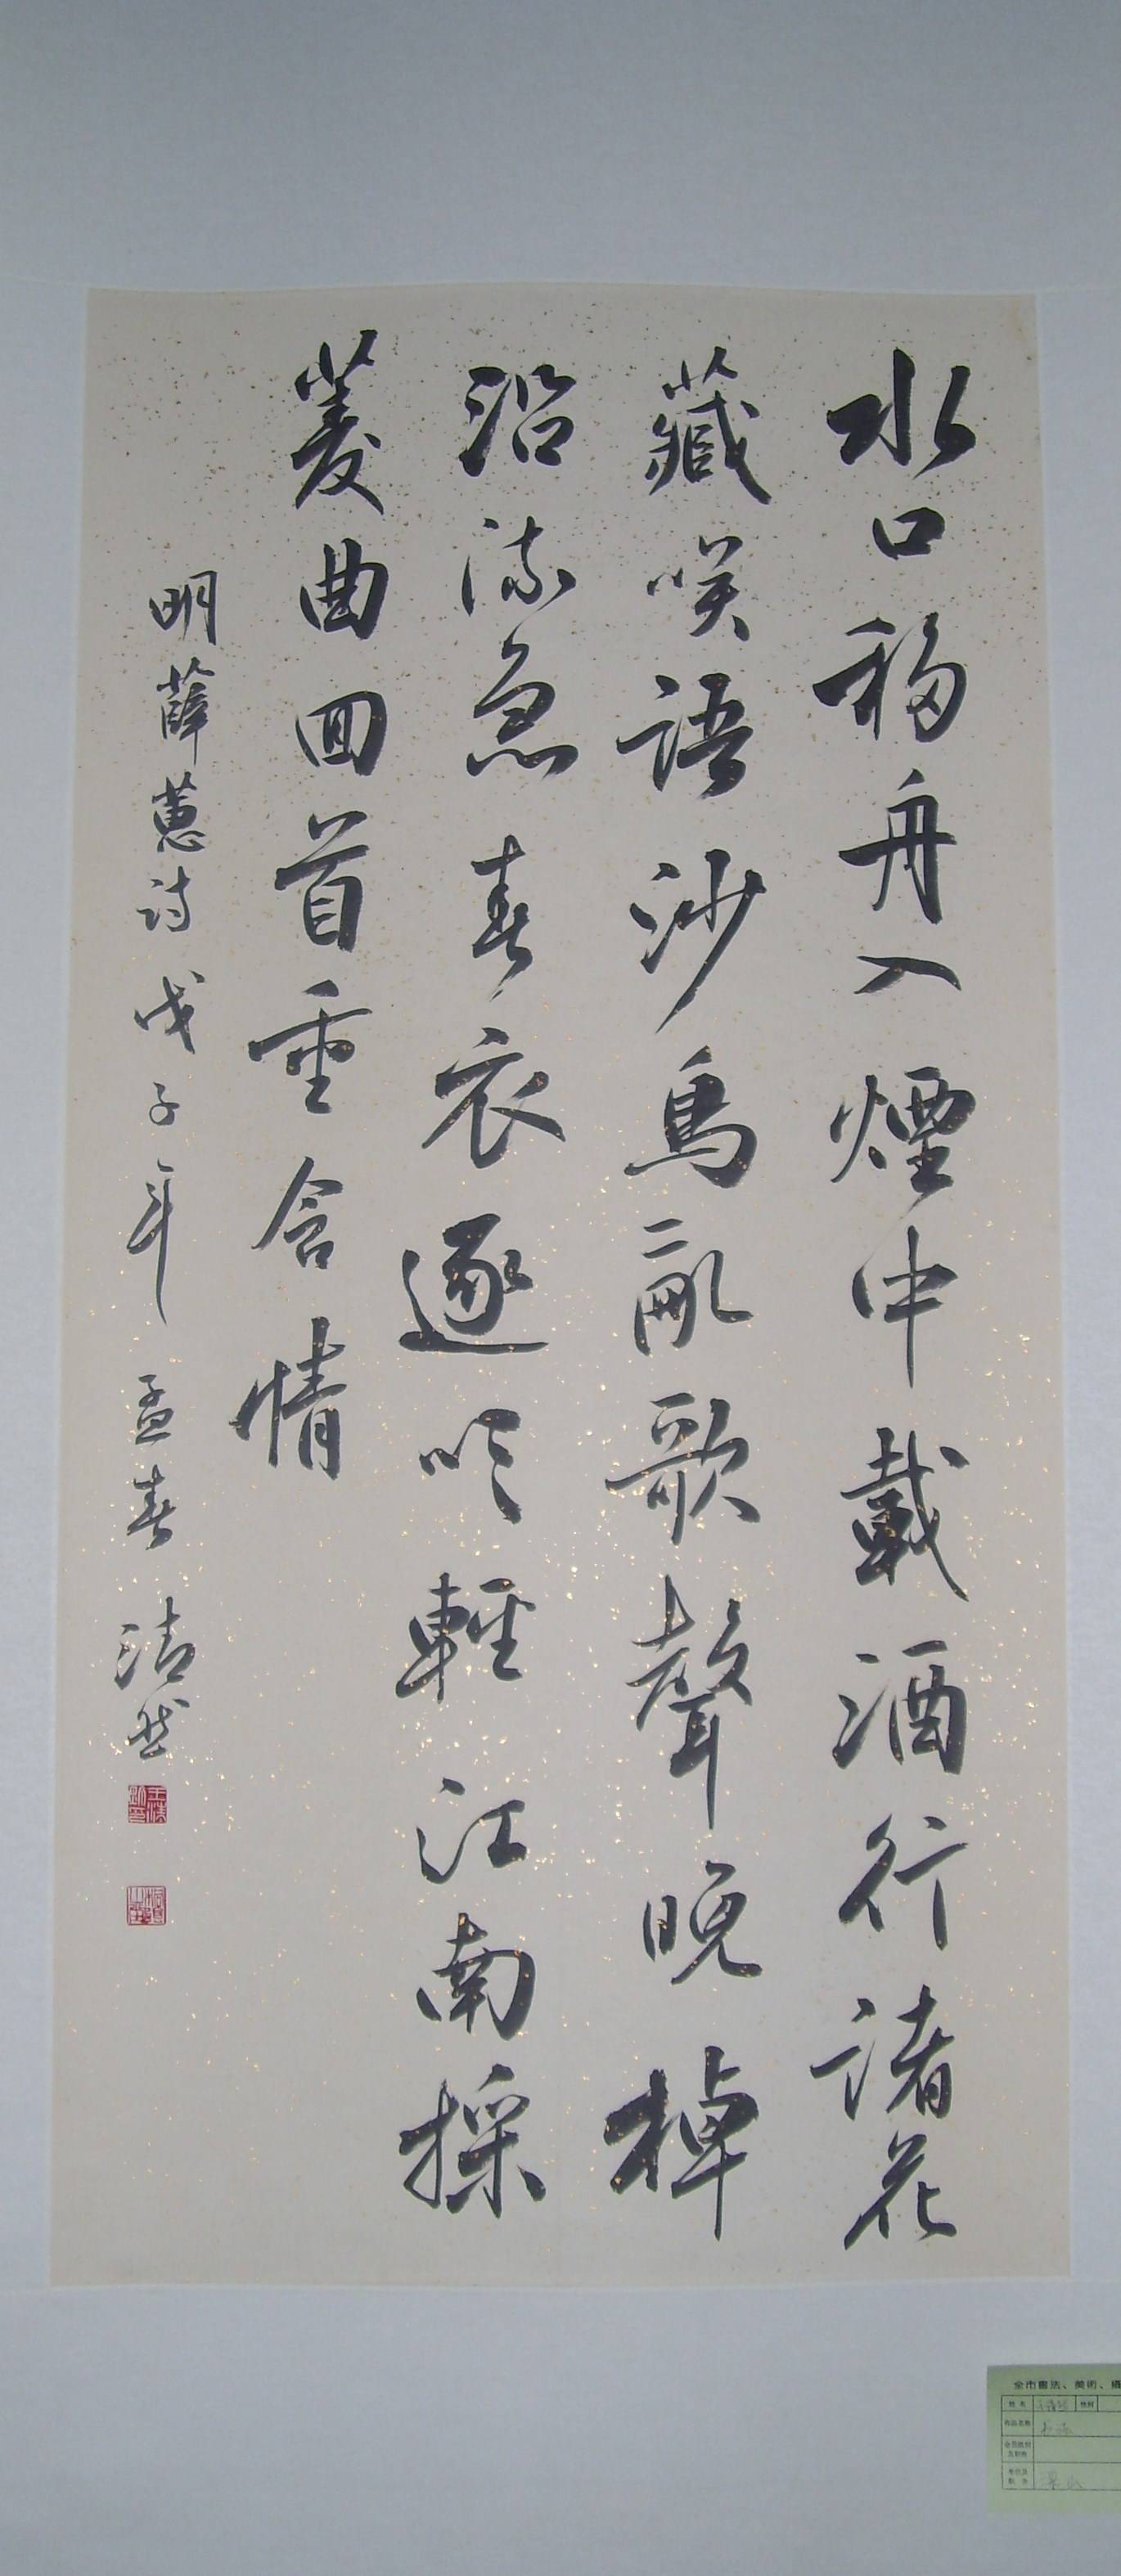 水口移舟入煙中載酒行諸花
藏咲語沙鳥亂歌聲晚棹
沿流急春衣逐吹輕江南採
菱曲回首重含情
明薛蕙詩戊子年孟春清然
全市書法、美術、攝
姓名 性别
作品名称